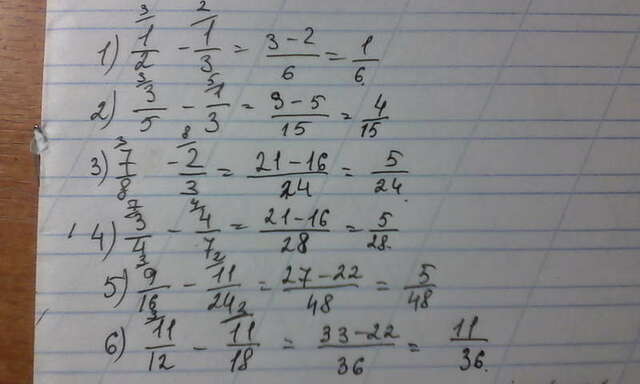 1) 1/2 - 1/3 = 3-2/6 = 1/6
2) 3/5 - 1/3 = 9-5/15 = 4/15
3) 7/8 - 2/3 = 21-16/24 = 5/24
4) 3/4 - 4/7 = 21-16/28 = 5/28
5) 9/16 - 11/24 = 27-22/48 = 5/48
6) 11/12 - 11/18 = 33-22/36 = 11/36